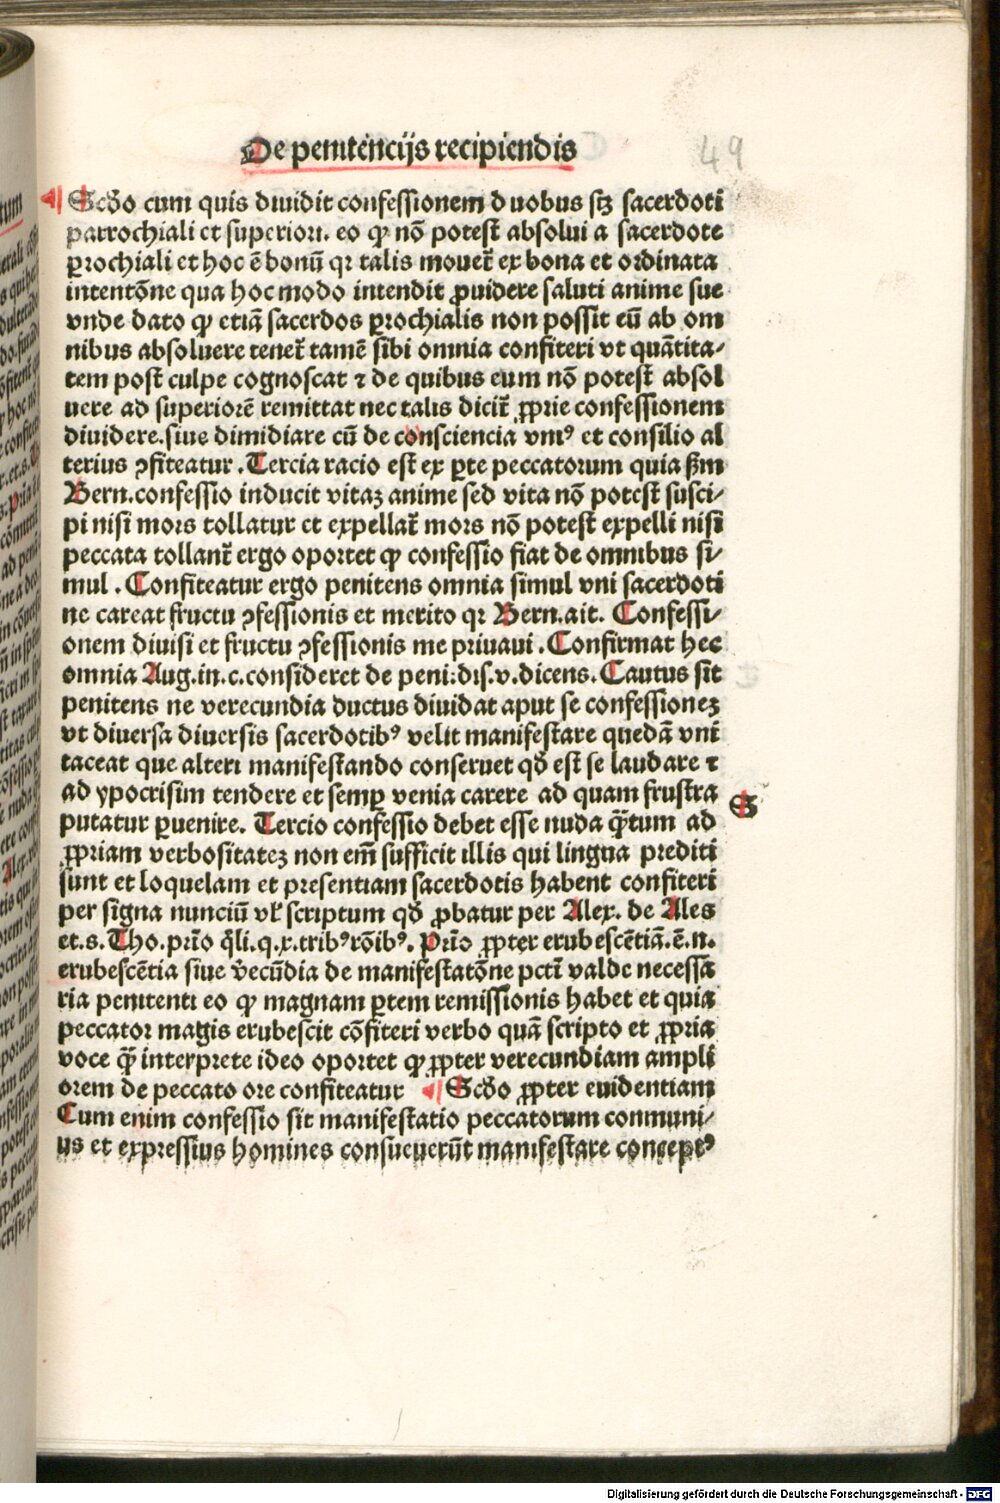 De penitencijs recipiendis
49
Scďo cum quis diuidit confessionem duobus scꝫ sacerdoti
parrochiali et superiori. eo ꝙ nõ potest absolui a sacerdote
ꝑrochiali et hoc ē bonū qꝛ talis mouet̃ ex bona et ordinata
intentõne qua hoc modo intendit ꝓuidere saluti anime sue
vnde dato ꝙ etiã sacerdos ꝑrochialis non possit eũ ab om
nibus absoluere tenet̃ tamẽ sibi omnia confiteri vt quãtita⸗
tem post culpe cognoscat ⁊ de quibus eum nõ potest absol
uere ad superiorẽ remittat nec talis dicit̃ ꝓprie confessionem
diuidere. siue dimidiare cũ de consciencia vniꝰ et consilio al
terius ꝯfiteatur. Tercia racio est ex ꝑte peccatorum quia ẜm
Bern. confessio inducit vitaꝫ anime sed vita nõ potest susci⸗
pi nisi mors tollatur et expellat̃ mors nõ potest expelli nisi
peccata tollant̃ ergo oportet ꝙ confessio fiat de omnibus si⸗
mul. Confiteatur ergo penitens omnia simul vni sacerdoti
ne careat fructu ꝯfessionis et merito qꝛ Bern. ait. Confessi⸗
onem diuisi et fructu ꝯfessionis me priuaui. Confirmat hec
omnia Aug. in. c. consideret de peni: dis. v. dicens. Cautus sit
penitens ne verecundia ductus diuidat aput se confessioneꝫ
vt diuersa diuersis sacerdotibꝰ velit manifestare quedã vni
taceat que alteri manifestando conseruet qď est se laudare ⁊
ad ypocrisim tendere et semꝑ venia carere ad quam frustra
putatur ꝑuenire. Tercio confessio debet esse nuda q̃tum ad
S
ꝓpriam verbositateꝫ non em̃ sufficit illis qui lingua prediti
sunt et loquelam et presentiam sacerdotis habent confiteri
per signa nunciũ vꝉ scriptum qď ꝓbatur per Alex. de Ales
et. s. Tho. prĩo q̃li. q. x. tribꝰ rõibꝰ. Prĩo ꝓpter erubescẽtiã. ẽ. n.
erubescẽtia siue v̓ecũdia de manifestatõne pcti̅ valde necessa
ria penitenti eo ꝙ magnam ꝑtem remissionis habet et quia
peccator magis erubescit cõfiteri verbo quã scripto et ꝓpria
voce q̃ interprete ideo oportet ꝙ ꝓpter verecundiam ampli
orem de peccato ore confiteatur Scďo ꝓpter euidentiam
Cum enim confessio sit manifestatio peccatorum conmuni⸗
us et expressius homines consueuerũt manifestare conceptꝰ
Digitalisierung gefördert durch die Deutsche Forschungsgemeinschaft - DFG